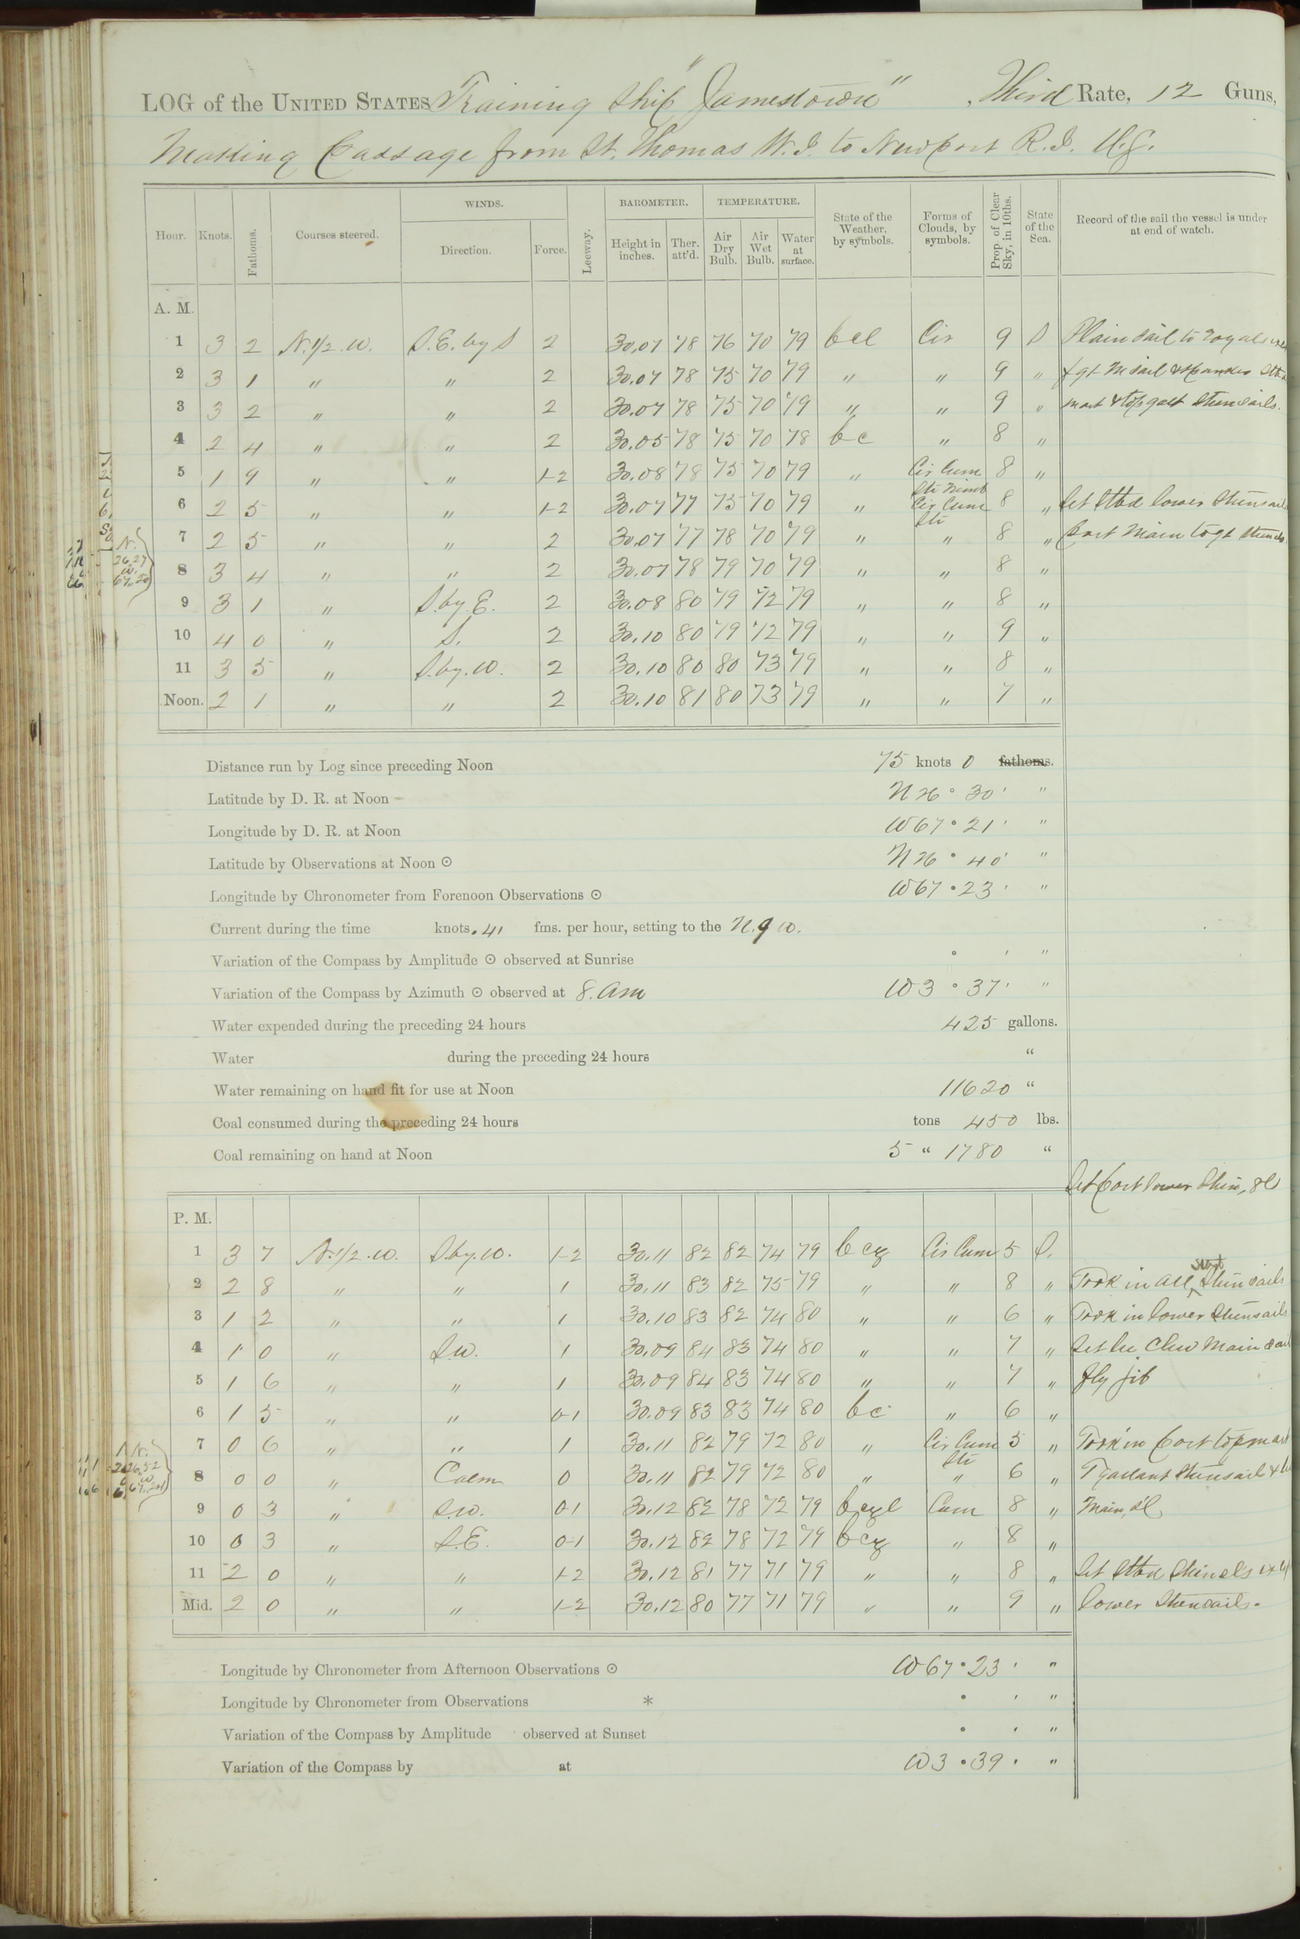 LOG of the UNITED STATES Training Ship "Jamestown", Third Rate, 12 Guns,
Making Passage from St. Thomas W.I. to Newport R.I. U.S.
Hour. Knots. Fathoms. Courses steered. WINDS. Direction. Force. Leeway. BAROMETER. Height in inches. Ther. att'd. TEMPERATURE. Air Dry Bulb. Air Wet Bulb. Water at surface. State of the Weather, by symbols. Forms of Clouds, by symbols. Prop. of Clear Sky, in 10ths. State of the Sea. Record of the sail the vessel is under at end of watch.
A. M.
1 3 2 N. 1/2 W. S.E. by S 2 30.07 78 76 70 79 bcl Cir 9 S Plain sail to royals
2 3 1 " " 2 30.07 78 75 70 79 " " 9 "
3 3 2 " " 2 30.07 78 75 70 79 " " 9 " mast & top gall Stunsails.
4 2 4 " " 2 30.05 78 75 70 78 bc " 8 "
5 1 9 " " 1-2 30.08 78 75 70 79 " Cir Cum 8 "
Str Nimb
6 2 5 " " 1-2 30.07 77 75 70 79 " Cir Cum 8 " Set Stbd lower Stunsail
Str
7 2 5 " " 2 30.07 77 78 70 79 " " 8 " Port Main topgt
8 3 4 " " 2 30.07 78 79 70 79 " " 8 "
9 3 1 " S. by E. 2 30.08 80 79 72 79 " " 8 "
10 4 0 " S. 2 30.10 80 79 72 79 " " 9 "
11 3 5 " S. by. W. 2 30.10 80 80 73 79 " " 8 "
Noon. 2 1 " " 2 30.10 81 80 73 79 " " 7 "
N.
26.27
W.
67.20
Distance run by Log since preceding Noon 75 knots 0 fathoms.
Latitude by D. R. at Noon N 26 ° 30 ' "
Longitude by D. R. at Noon W 67 ° 21 ' "
Latitude by Observations at Noon ⊙ N 26 ° 40 ' "
Longitude by Chronometer from Forenoon Observations ⊙ W 67 ° 23 ' "
Current during the time knots .41 fms. per hour, setting to the N. 9 W.
Variation of the Compass by Amplitude ⊙ observed at Sunrise ° ' "
Variation of the Compass by Azimuth ⊙ observed at 8. am W 3 ° 37 ' "
Water expended during the preceding 24 hours 425 gallons.
Water during the preceding 24 hours "
Water remaining on hand fit for use at Noon 11620 "
Coal consumed during the preceding 24 hours tons 450 lbs.
Coal remaining on hand at Noon 5 " 1780 "
Set Port lower Stun, sl
P. M.
1 3 7 N. 1/2 W. S. by. W. 1-2 30.11 82 82 74 79 bcq Cir Cum 5 S.
2 2 8 " " 1 30.11 83 82 75 79 " " 8 " Took in all Stbd Stun sails
3 1 2 " " 1 30.10 83 82 74 80 " " 6 " Took in lower Stunsails
4 1 0 " SW. 1 30.09 84 83 74 80 " " 7 " Set lee Clew Main sail
5 1 6 " " 1 30.09 84 83 74 80 " " 7 " fly jib
6 1 5 " " 0-1 30.09 83 83 74 80 bc " 6 "
7 0 6 " " 1 30.11 82 79 72 80 " Cir Cum 5 " Took in Port topmast
Str
8 0 0 " Calm 0 30.11 82 79 72 80 " " 6 " T gallant Stunsail &
9 0 3 " SW. 0-1 30.12 82 78 72 79 bcql Cum 8 " Main, sl
10 0 3 " S.E. 0-1 30.12 82 78 72 79 bcq " 8 "
11 2 0 " " 1-2 30.12 81 77 71 79 " " 8 " Set Stbd Stunsls
Mid. 2 0 " " 1-2 30.12 80 77 71 79 " " 9 " lower Stunsails.
Longitude by Chronometer from Afternoon Observations ⊙ W 67 ° 23 ' "
Longitude by Chronometer from Observations * ° ' "
Variation of the Compass by Amplitude observed at Sunset ° ' "
Variation of the Compass by at W 3 ° 39 ' "